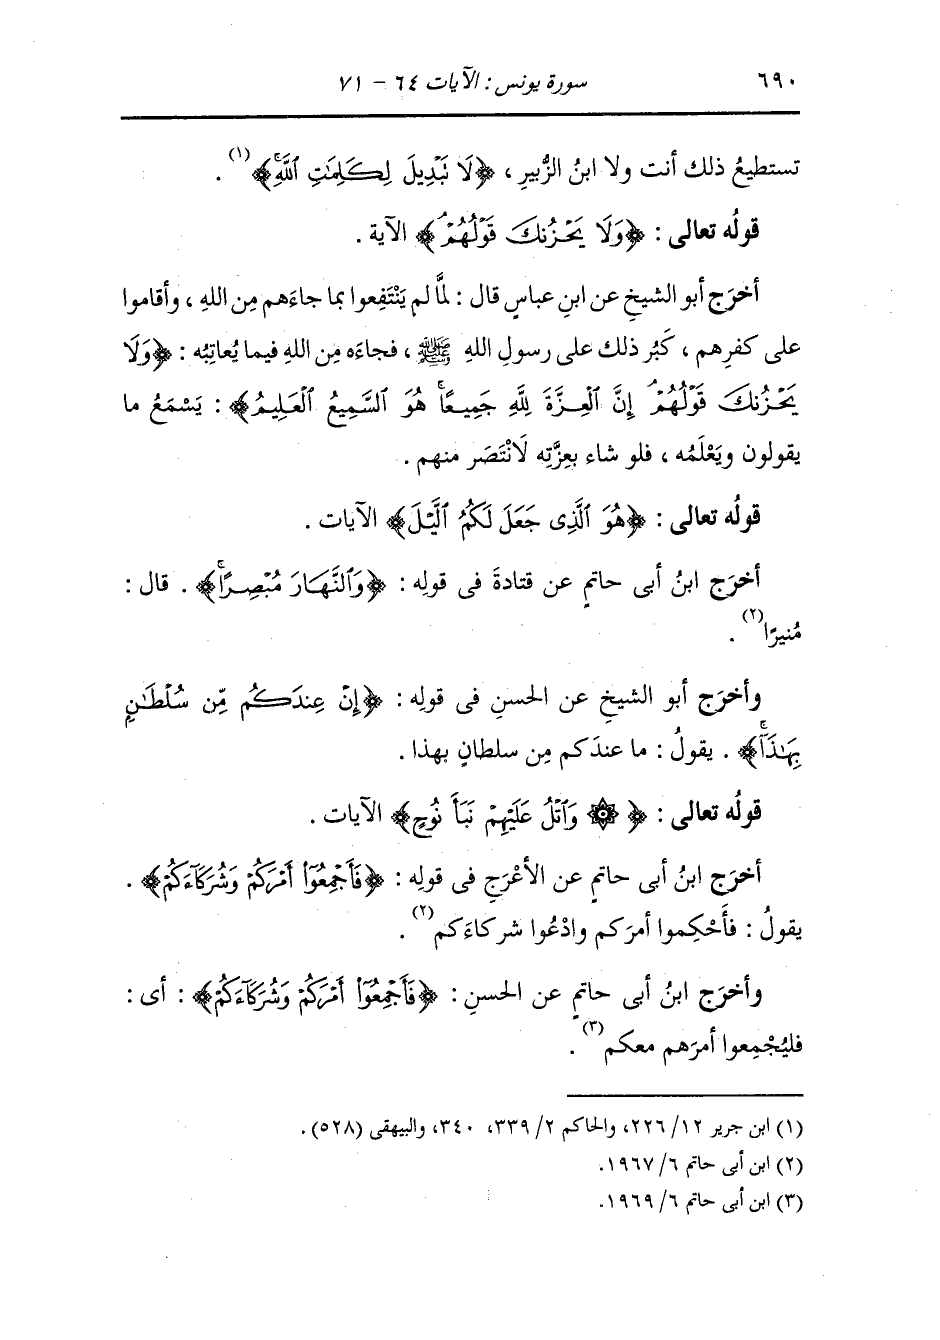 ٦٩٠ سورة يونس : الآيات ٦٤ - ٧١
تستطيعُ ذلك أنت ولا ابنُ الزُّبيرِ ، ﴿لَا نَبْدِيلَ لِكَلِمَٰتِ ٱللَّهِۚ﴾(١) .
قولُه تعالى : ﴿وَلَا يَحْزُنكَ قَوْلُهُمْۘ﴾ الآية .
أخرَج أبو الشيخِ عن ابنِ عباسٍ قال : لمَّا لم يَنْتَفِعوا بما جاءَهم مِن اللهِ ، وأقاموا
على كفرِهم ، كَبُر ذلك على رسولِ اللهِ ﷺ ، فجاءَه مِن اللهِ فيما يُعاتِبُه : ﴿وَلَا
يَحْزُنكَ قَوْلُهُمْۘ إِنَّ ٱلْعِزَّةَ لِلَّهِ جَمِيعًاۚ هُوَ ٱلسَّمِيعُ ٱلْعَلِيمُ﴾ : يَسْمَعُ ما
يقولون ويَعْلَمُه ، فلو شاء بعِزَّتِه لَانْتَصَر منهم .
قولُه تعالى : ﴿هُوَ ٱلَّذِى جَعَلَ لَكُمُ ٱلَّيْلَ﴾ الآيات .
أخرَج ابنُ أبى حاتمٍ عن قتادةَ فى قولِه : ﴿وَٱلنَّهَارَ مُبْصِرًاۚ﴾ . قال :
مُنيرًا(٢) .
وأخرَج أبو الشيخِ عن الحسنِ فى قولِه : ﴿إِنْ عِندَكُم مِّن سُلْطَٰنٍۭ
بِهَٰذَآۚ﴾ . يقولُ : ما عندَكم مِن سلطانٍ بهذا .
قولُه تعالى : ﴿ ۞ وَٱتْلُ عَلَيْهِمْ نَبَأَ نُوحٍ﴾ الآيات .
أخرَج ابنُ أبى حاتمٍ عن الأعْرَجِ فى قولِه : ﴿فَأَجْمِعُوٓا۟ أَمْرَكُمْ وَشُرَكَآءَكُمْ﴾ .
يقولُ : فأَحْكِموا أمرَكم وادْعُوا شركاءَكم(٢) .
وأخرَج ابنُ أبى حاتمٍ عن الحسنِ : ﴿فَأَجْمِعُوٓا۟ أَمْرَكُمْ وَشُرَكَآءَكُمْ﴾ : أى :
فليُجْمِعوا أمرَهم معكم(٣) .
(١) ابن جرير ١٢/ ٢٢٦، والحاكم ٢/ ٣٣٩، ٣٤٠، والبيهقى (٥٢٨).
(٢) ابن أبى حاتم ٦/ ١٩٦٧.
(٣) ابن أبى حاتم ٦/ ١٩٦٩.